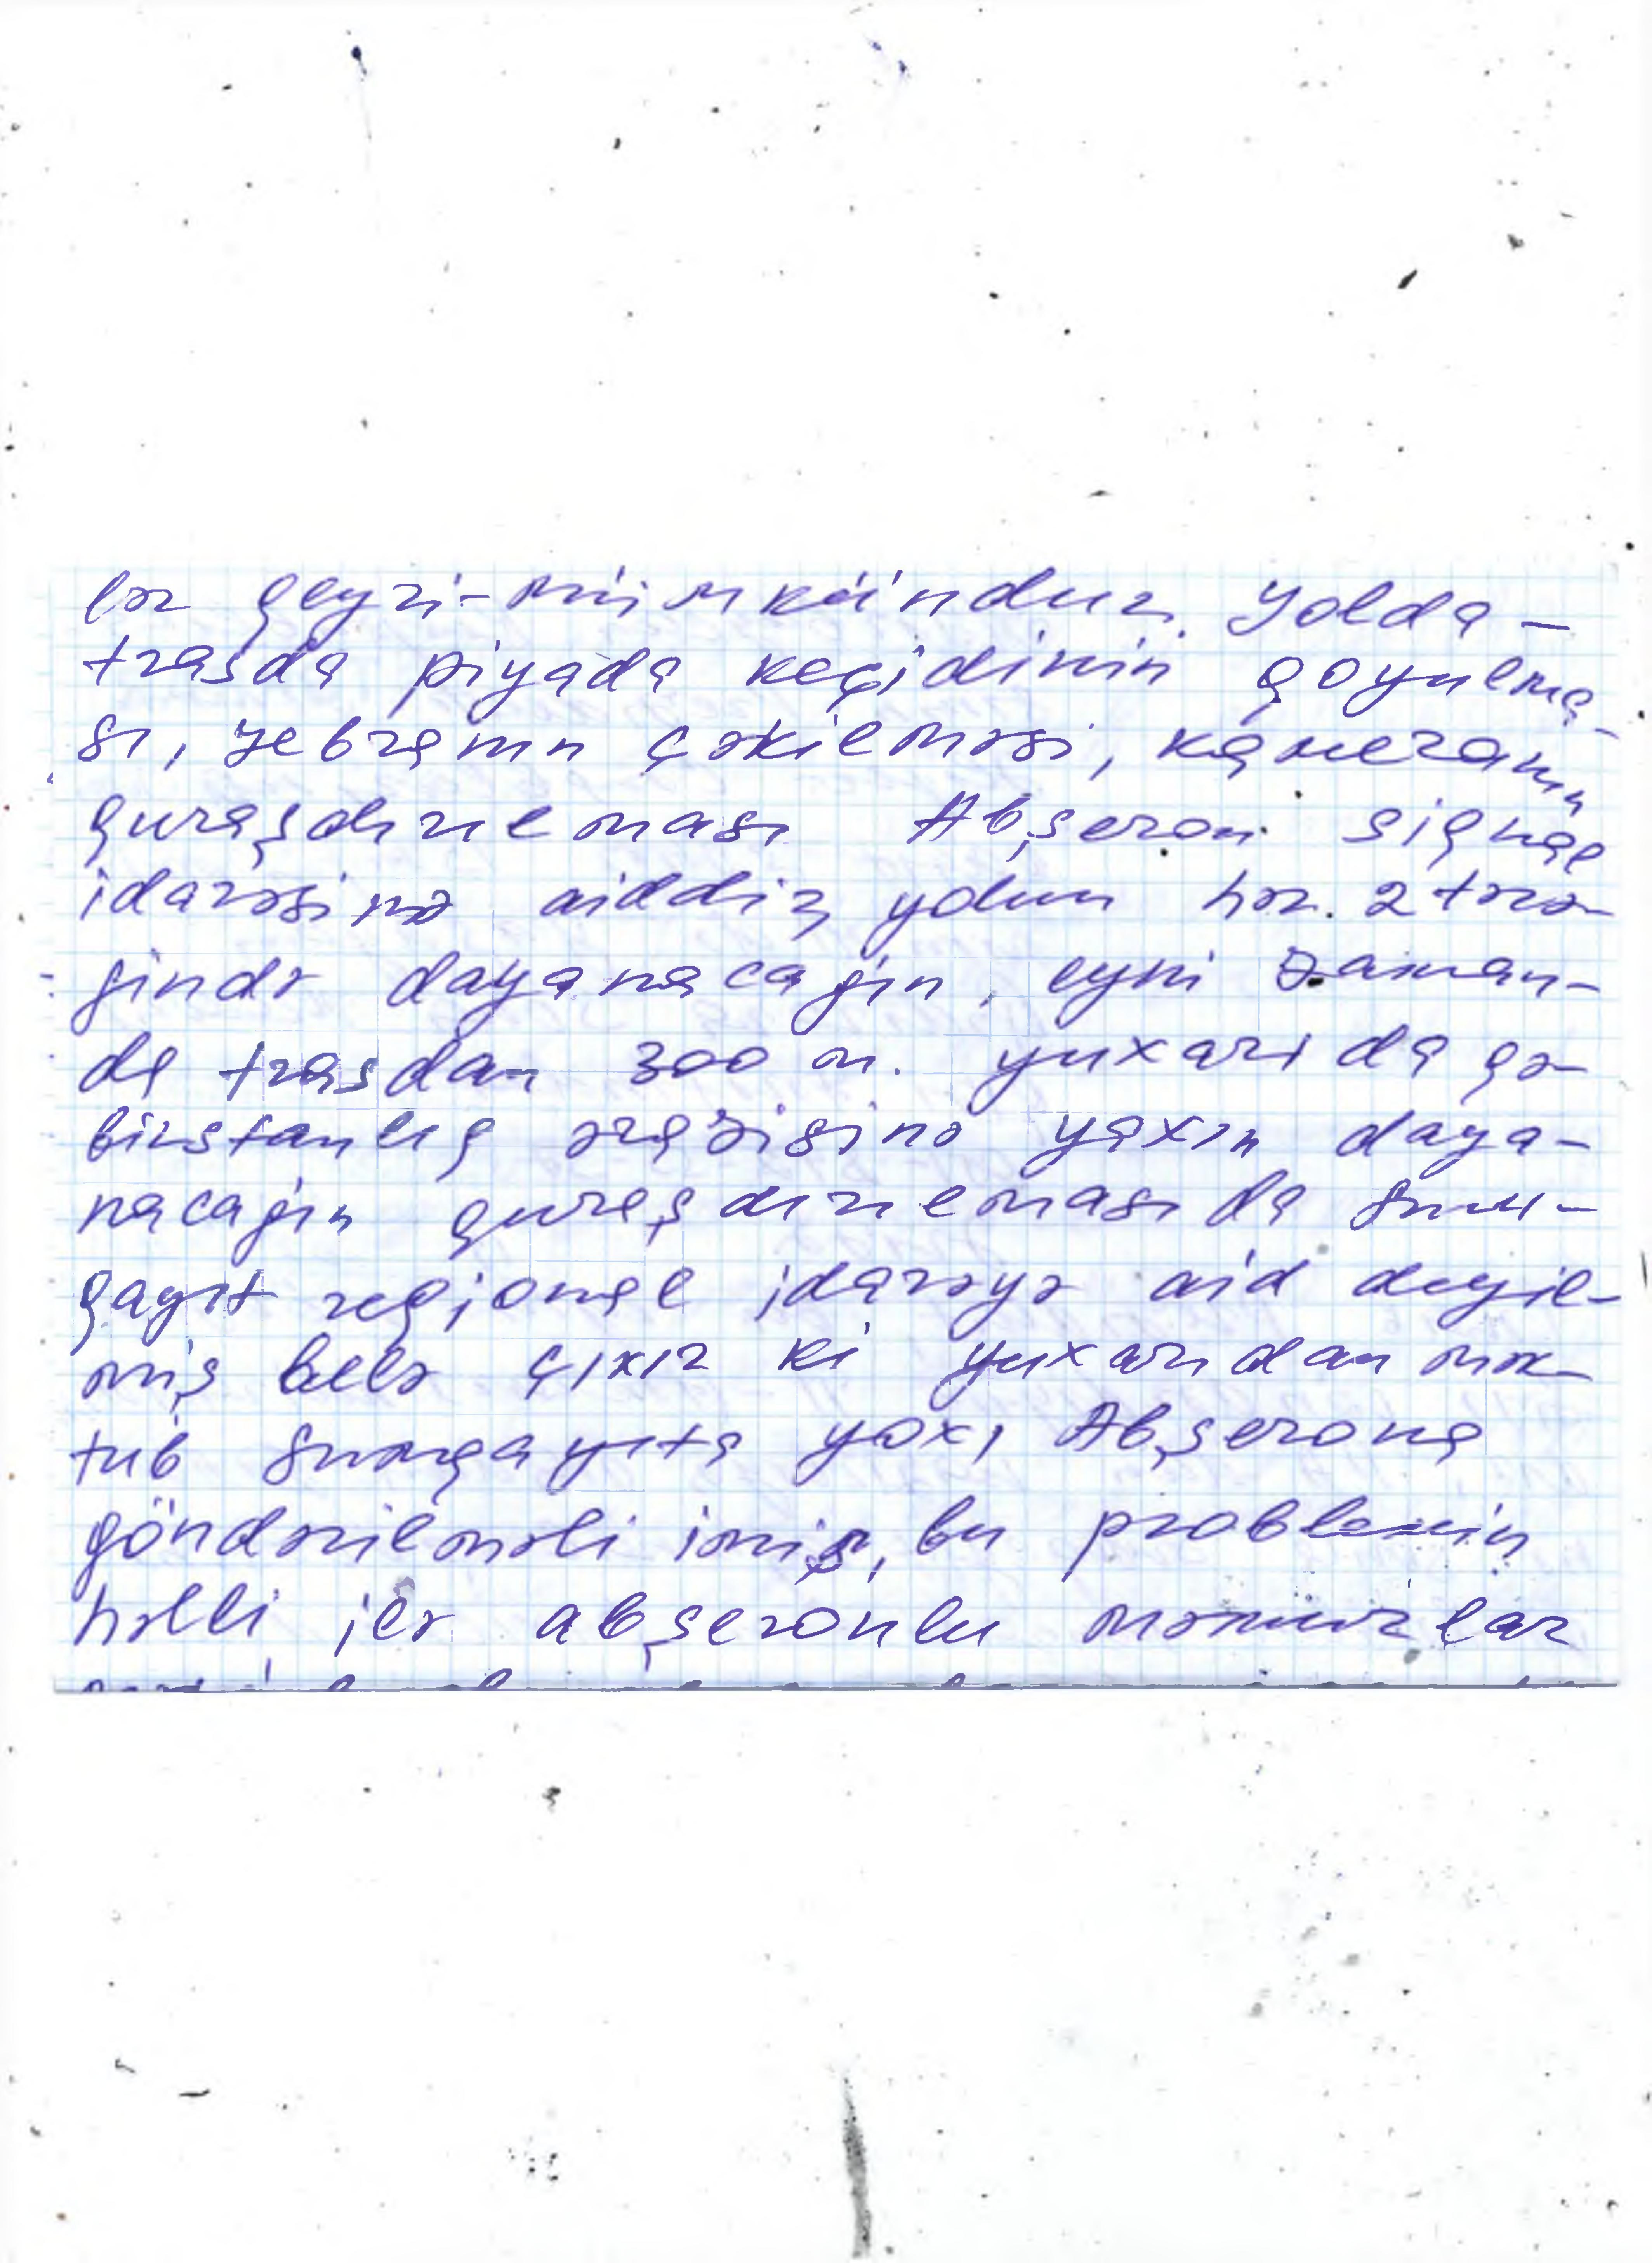 lər qeyri-mümkündür. Yolda-
trasda piyada keçidinin qoyulma-
sı, zebranın çəkilməsi, kameranın
quraşdırılması Abşeron signal
idarəsinə aiddir, yolun hər 2 tərə-
fində dayanacağın, eyni zaman-
da trasdan 300 m. yuxarıda qə-
biristanlıq ərazisinə yaxın daya-
nacağın quraşdırılması da Sum-
qayıt regional idarəyə aid deyil-
miş belə çıxır ki yuxarıdan mək-
tub Sumqayıta yox, Abşerona
göndərilməli imiş, bu problemin
həlli ilə abşeronlu məmurlar